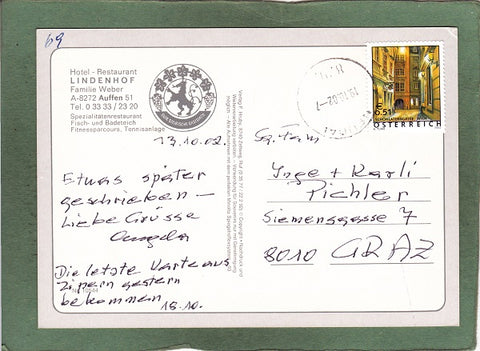 69
Hotel - Restaurant
LINDENHOF
Familie Weber
A-8272 Auffen 51
Tel. 0 33 33 / 23 20
Spezialitätenrestaurant
Fisch- und Badeteich
Fitnessparcours, Tennisanlage
13.10.02.
Etwas später
geschrieben –
Liebe Grüsse
Angela
Die letzte Karte aus
Zypern gestern
bekommen
15.10.
0.51
ÖSTERREICH
Fam.
Inge + Karli
Pichler
Siemensgasse 7
8010 GRAZ